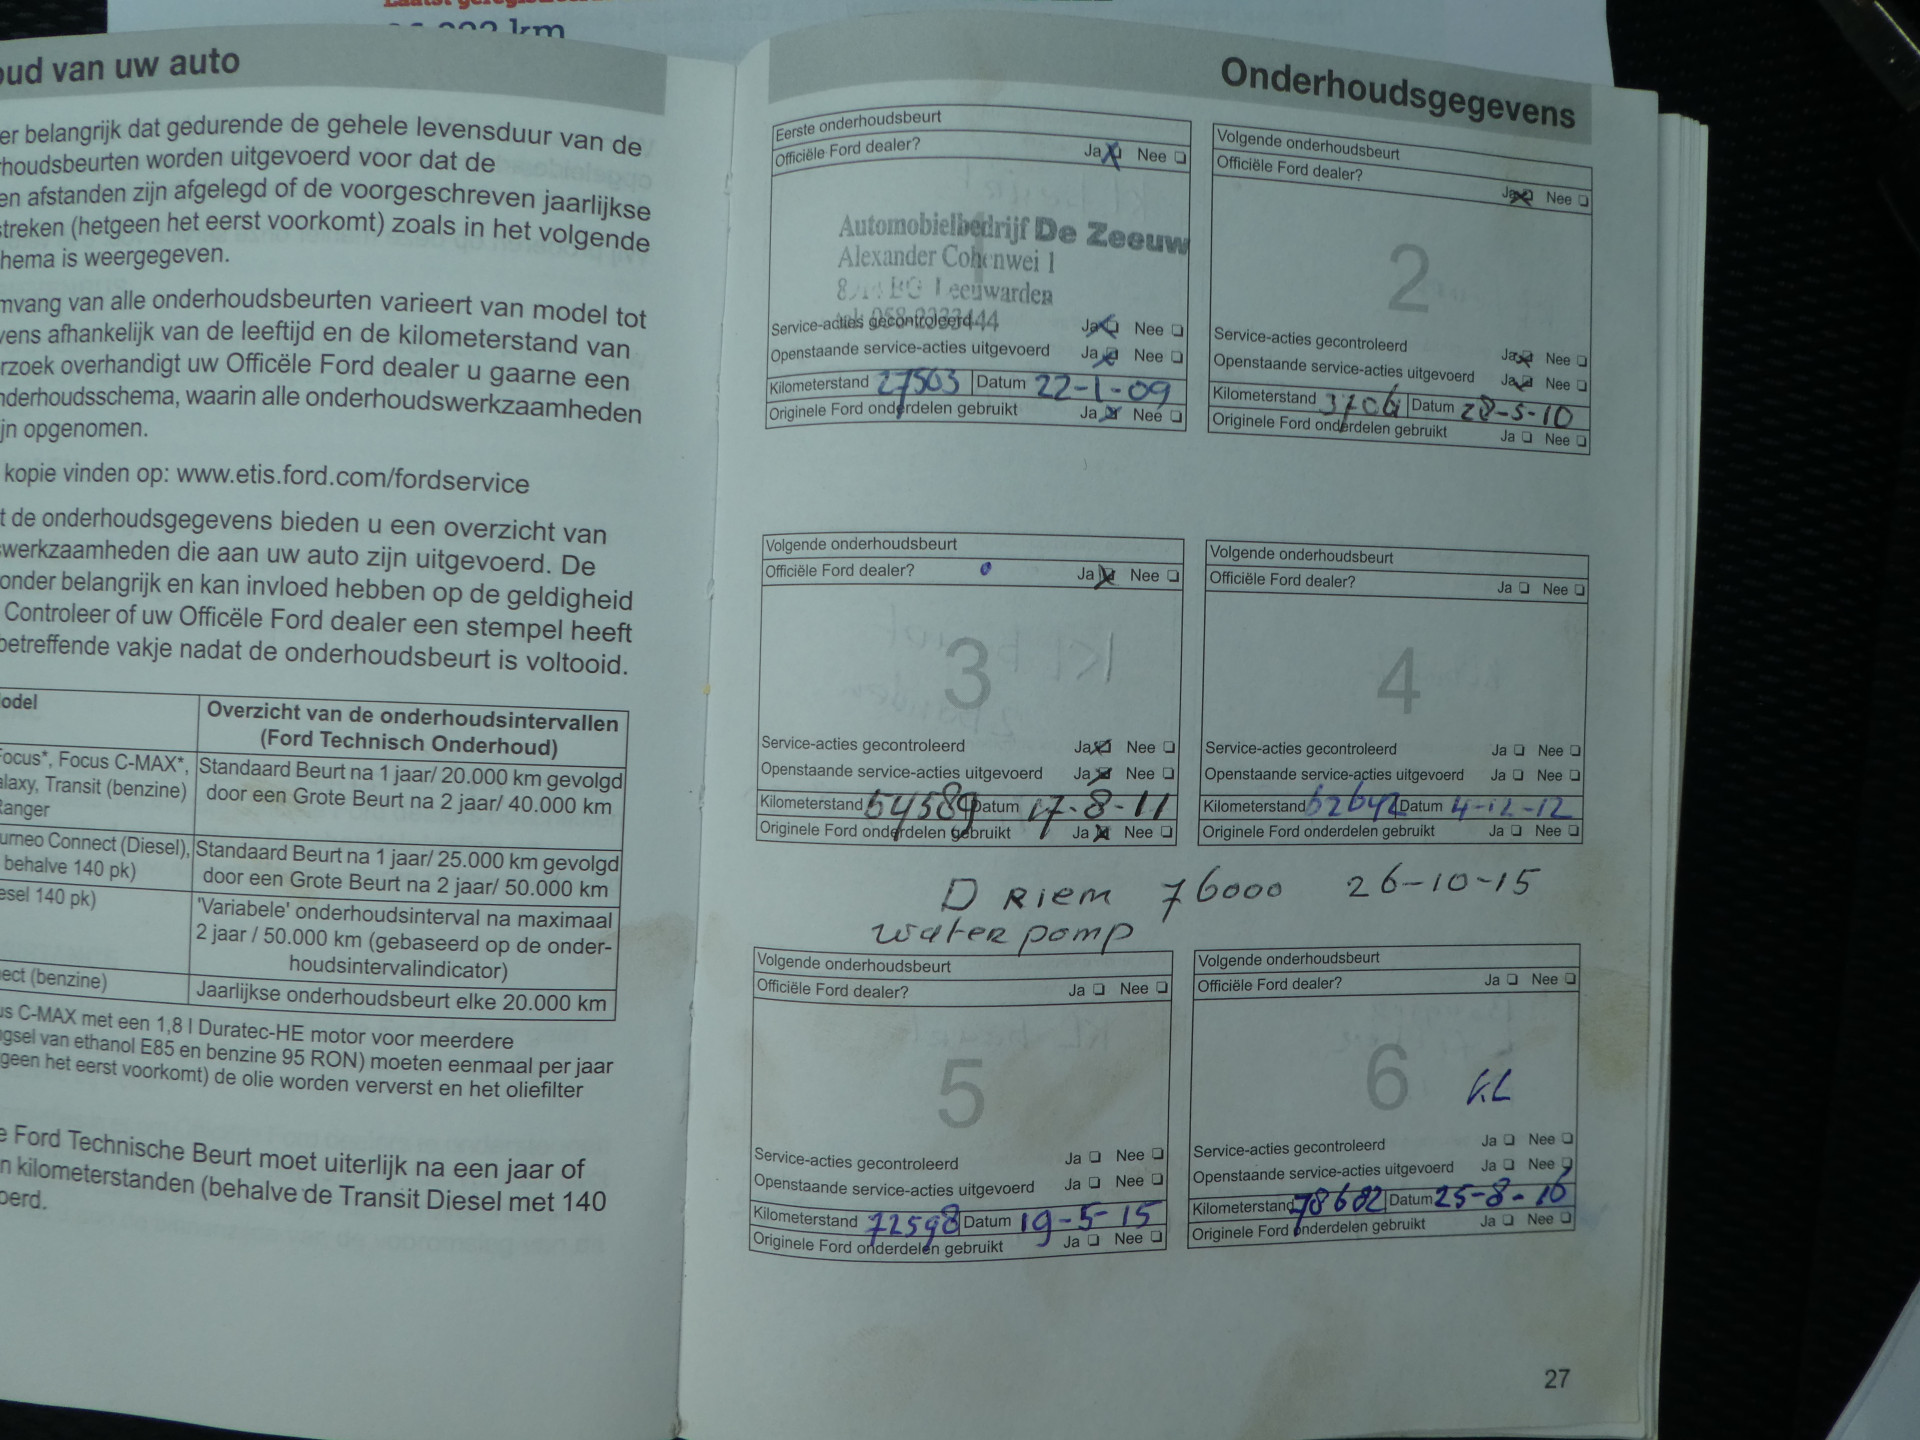 km
oud van uw auto
er belangrijk dat gedurende de gehele levensduur van de
rhoudsbeurten worden uitgevoerd voor dat de
en afstanden zijn afgelegd of de voorgeschreven jaarlijkse
streken (hetgeen het eerst voorkomt) zoals in het volgende
hema is weergegeven.
mvang van alle onderhoudsbeurten varieert van model tot
vens afhankelijk van de leeftijd en de kilometerstand van
rzoek overhandigt uw Officële Ford dealer u gaarne een
nderhoudsschema, waarin alle onderhoudswerkzaamheden
ijn opgenomen.
kopie vinden op: www.etis.ford.com/fordservice
t de onderhoudsgegevens bieden u een overzicht van
swerkzaamheden die aan uw auto zijn uitgevoerd. De
onder belangrijk en kan invloed hebben op de geldigheid
Controleer of uw Officële Ford dealer een stempel heeft
betreffende vakje nadat de onderhoudsbeurt is voltooid.
odel
Overzicht van de onderhoudsintervallen
(Ford Technisch Onderhoud)
Focus*, Focus C-MAX*,
alaxy, Transit (benzine)
Ranger
Standaard Beurt na 1 jaar/ 20.000 km gevolgd
door een Grote Beurt na 2 jaar/ 40.000 km
urneo Connect (Diesel),
behalve 140 pk)
Standaard Beurt na 1 jaar/ 25.000 km gevolgd
door een Grote Beurt na 2 jaar/ 50.000 km
esel 140 pk)
'Variabele' onderhoudsinterval na maximaal
2 jaar / 50.000 km (gebaseerd op de onder-
houdsintervalindicator)
nect (benzine)
Jaarlijkse onderhoudsbeurt elke 20.000 km
us C-MAX met een 1,8 l Duratec-HE motor voor meerdere
ngsel van ethanol E85 en benzine 95 RON) moeten eenmaal per jaar
geen het eerst voorkomt) de olie worden ververst en het oliefilter
e Ford Technische Beurt moet uiterlijk na een jaar of
n kilometerstanden (behalve de Transit Diesel met 140
oerd.
Onderhoudsgegevens
Eerste onderhoudsbeurt
Officiële Ford dealer? Ja Nee
Automobielbedrijf De Zeeuw
Alexander Cohenwei 1
Leeuwarden
Service-acties gecontroleerd Ja Nee
Openstaande service-acties uitgevoerd Ja Nee
Kilometerstand 27563 Datum 22-1-09
Originele Ford onderdelen gebruikt Ja Nee
Volgende onderhoudsbeurt
Officiële Ford dealer? Ja Nee
2
Service-acties gecontroleerd Ja Nee
Openstaande service-acties uitgevoerd Ja Nee
Kilometerstand Datum 28-5-10
Originele Ford onderdelen gebruikt Ja Nee
Volgende onderhoudsbeurt
Officiële Ford dealer? Ja Nee
3
Service-acties gecontroleerd Ja Nee
Openstaande service-acties uitgevoerd Ja Nee
Kilometerstand 54589 Datum 17-8-11
Originele Ford onderdelen gebruikt Ja Nee
Volgende onderhoudsbeurt
Officiële Ford dealer? Ja Nee
4
Service-acties gecontroleerd Ja Nee
Openstaande service-acties uitgevoerd Ja Nee
Kilometerstand 62642 Datum 4-12-12
Originele Ford onderdelen gebruikt Ja Nee
D RIEM 76000 26-10-15
waterpomp
Volgende onderhoudsbeurt
Officiële Ford dealer? Ja Nee
5
Service-acties gecontroleerd Ja Nee
Openstaande service-acties uitgevoerd Ja Nee
Kilometerstand 72598 Datum 19-5-15
Originele Ford onderdelen gebruikt Ja Nee
Volgende onderhoudsbeurt
Officiële Ford dealer? Ja Nee
6
KL
Service-acties gecontroleerd Ja Nee
Openstaande service-acties uitgevoerd Ja Nee
Kilometerstand 78682 Datum 25-8-16
Originele Ford onderdelen gebruikt Ja Nee
27